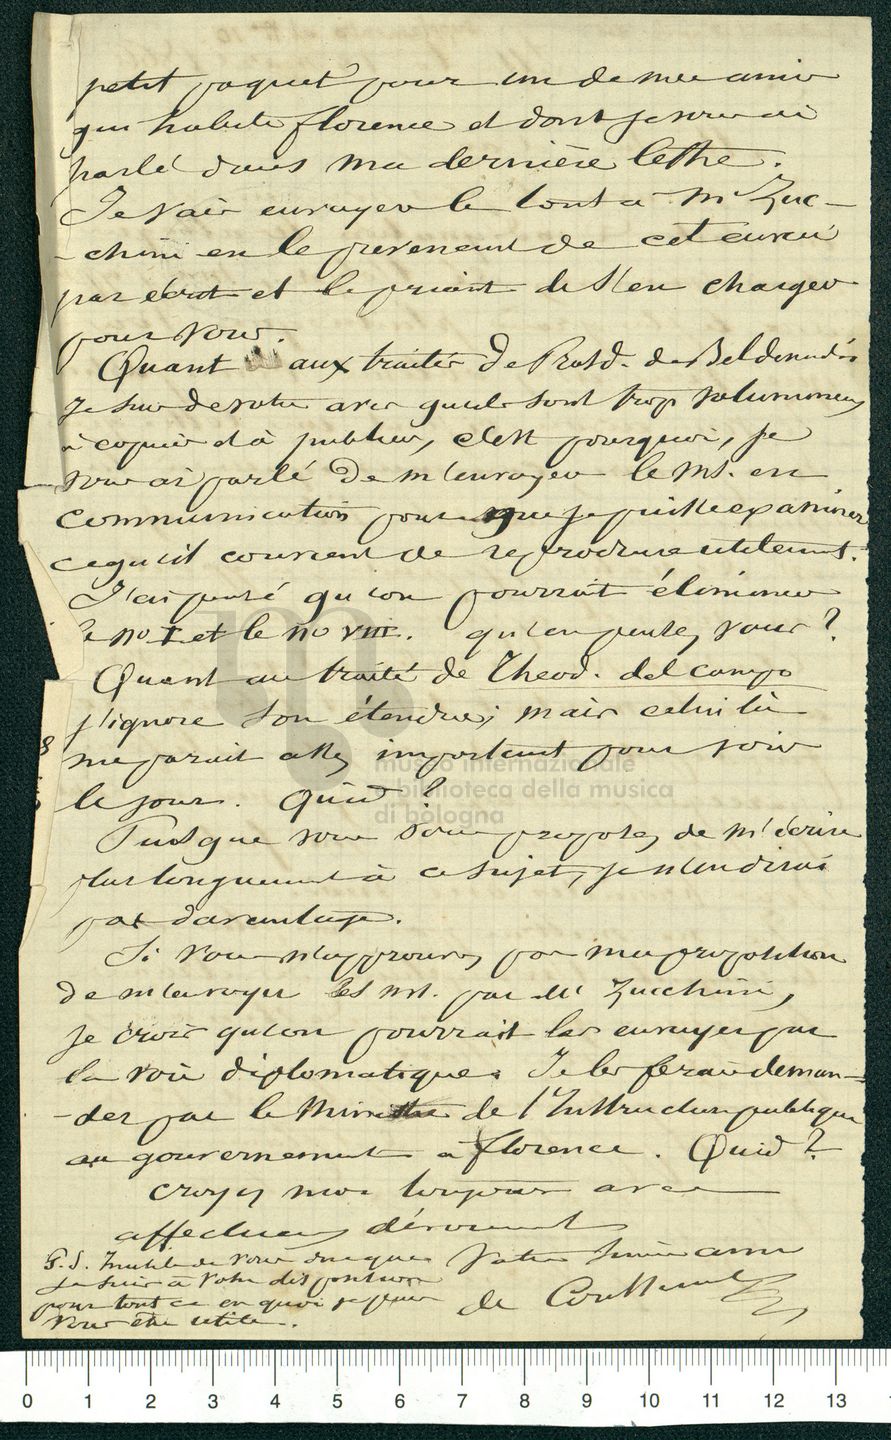 petit paquet pour un de mes amis
qui habite florence et dont je vous ai
parlé dans ma dernière lettre.
Je vais envoyer le tout à Mr Zuc-
-chini en le prevenant de cet envoi
par écrit et le priant de s'en charger
pour vous.
Quant aux traités de Prosd. de Beldemandis
je suis de votre avis qu'ils sont trop volumineux
à copier et à publier, c'est pourquoi, je
vous ai parlé de m'envoyer le ms. en
communication pour que je puisse examiner
ce qu'il convient de reproduire utilement.
J'ai pensé qu'on pourrait éliminer
le no I et le no VIII. qu'en pensez vous?
Quant au traité de Theod. del campo
j'ignore son étendue; mais celui là
me parait assez important pour voir
le jour. Quid?
Puisque vous vous proposez de m'écrire
plus longuement à ce sujet, je n'en dirai
pas davantage.
Si vous n'approuvez pas ma proposition
de m'envoyer les ms. par Mr Zucchini,
je crois qu'on pourrait les envoyer par
la voie diplomatique. Je les ferai deman-
-der par le Ministre de l'Instruction publique
au gouvernement à florence. Quid?
croyez moi toujours avec
affectueux dévouement
Votre sincère ami
de Coussemaker
P.S. Inutile de vous dire que
je suis à votre disposition
pour tout ce en quoi je puis
vous être utile.
museo internazionale
e biblioteca della musica
di bologna
0 1 2 3 4 5 6 7 8 9 10 11 12 13